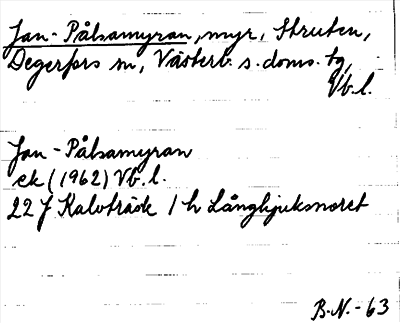 Jan-Pålsamyran, myr, Struten,
Degerfors sn, Västerb. s. doms. tg,
Vb. l.
Jan-Pålsamyran
ek (1962) Vb. l.
22 J Kalvträsk 1 h Långhjuksnoret
B.N.-63